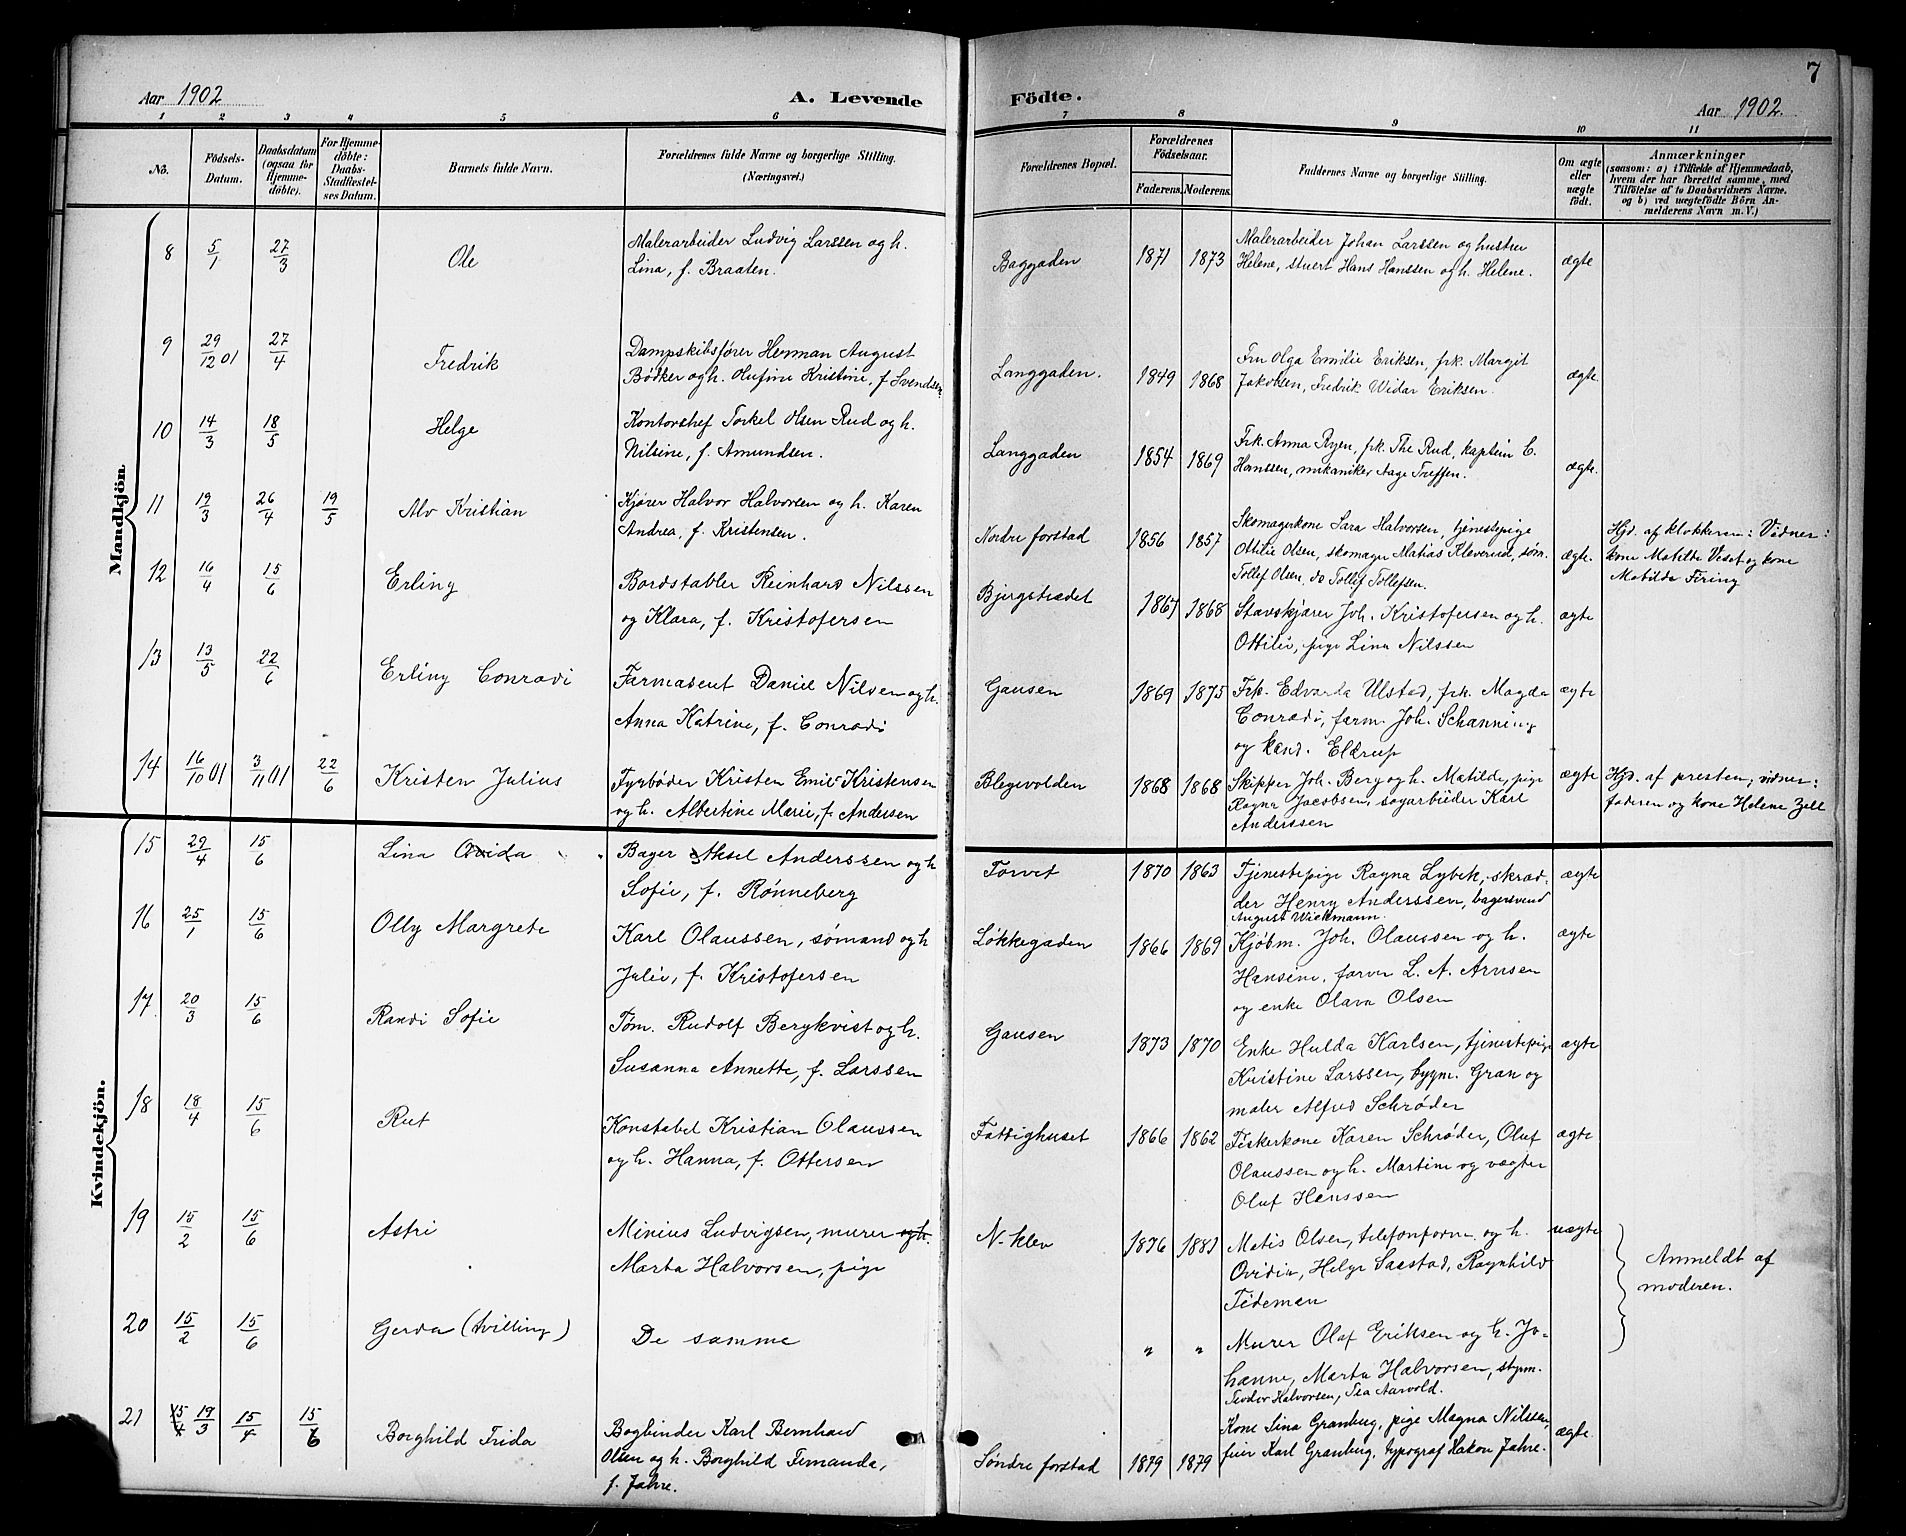 7
Aar 1902
A. Levende
Födte.
Aar 1902.
1 2 3 4 5 6 7 8 9 10 11
No.
Födsels-
Datum.
Daabsdatum
(ogsaa for
Hjemme-
döbte).
For Hjemme-
döbte:
Daabs-
Stadfestel-
ses Datum.
Barnets fulde Navn.
Forældrenes fulde Navne og borgerlige Stilling.
(Næringsvei.)
Forældrenes Bopæl.
Forældrenes
Födselsaar.
Faderens. Moderens.
Faddernes Navne og borgerlige Stilling.
Om ægte
eller
uægte
födt.
Anmærkninger
(saasom: a) i Tilfælde af Hjemmedaab,
hvem der har forrettet samme, med
Tilföielse af to Daabsvidners Navne.
og b) ved uegtefödte Börn An-
melderens Navn m. V.)
Mandkjön.
8 5/1 27/3 Ole
Malerarbeider Ludvig Larssen og h.
Lina, f. Braaten.
Baggaden 1871 1873
Malerarbeider Johan Larssen og hustru
Helene, stuert Hans Hanssen og h. Helene.
ægte
9 29/12 01 27/4 Fredrik
Dampskibsfører Herman August
Bödker og h. Olufine Kristine, f. Svendsen
Langgaden. 1849 1868
Fru Olga Emilie Eriksen, frk. Margit
Jakobsen, Fredrik Widar Eriksen.
ægte.
10 14/3 18/5 Helge
Kontorchef Torkel Olsen Rud og h.
Nilsine, f. Amundsen.
Langgaden 1854 1869
Frk. Anna Ryen, frk. The Rud, kaptein C.
Hanssen, mekaniker Aage Treffen.
ægte.
11 19/3 26/4 19/5 Alv Kristian
Kjører Halvor Halvorsen og h. Karen
Andrea, f. Kristensen.
Nordre forstad 1856 1857
Skomagerkone Sara Halvorsen, tjenestepige
Ottilie Olsen, skomager Matias Kleverud, søm.
Tollef Olsen, do Tollef Tollefsen.
ægte.
Hjd. af klokkeren: Vidner:
kone Matilde Veset og kone
Matilda Firing
12 16/4 15/6 Erling
Bordstabler Reinhard Nilssen
og Klara, f. Kristofersen
Bjergstrædet 1864 1868
Stavskjører Joh. Kristofersen og h.
Ottilie, pige Lina Nilssen
ægte
13 13/5 22/6 Erling Conradi
Farmaseut Daniel Nilsen og h.
Anna Katrine, f. Conradi
Gausen 1869 1875
Frk. Edvarda Ulstad, frk. Magda
Conradi, farm. Joh. Schanning
og kand. Eldrup
ægte
14 16/10 01 3/11 01 22/6 Kristen Julius
Fyrbøder Kristen Emil Kristensen
og h. Albertine Marie, f. Andersen
Blegevolden 1868 1868
Skipper Joh. Berg og h. Matilde, pige
Ragna Jacobsen, sagarbeider Karl
Anderssen
ægte
Hjd. af presten, vidner:
faderen og kone Helene Zell
Kvindekjön.
15 29/4 15/6 Lina Ovida
Bager Aksel Anderssen og h
Sofie, f. Rønneberg
Torvet 1870 1863
Tjenestepige Ragna Lybek, skræd-
der Henry Anderssen, bagersvend
August Wickmann.
ægte
16 25/1 15/6 Olly Margrete
Karl Olaussen, sømand og h
Julie, f. Kristofersen
Løkkegaden 1866 1869
Kjøbm. Joh. Olaussen og h.
Hansine, farver L. A. Arnsen
og enke Olava Olsen
ægte
17 20/3 15/6 Randi Sofie
Tøm. Rudolf Bergkvist og h.
Susanna Annette, f. Larssen
Gausen 1873 1870
Enke Hulda Karlsen, tjenestepige
Kristine Larssen, bygm. Gran og
maler Alfred Schrøder
ægte
18 18/4 15/6 Rut
Konstabel Kristian Olaussen
og h. Hanna, f. Ottersen
Fattighuset 1866 1862
Fiskerkone Karen Schrøder, Oluf
Olaussen og h. Martine og vægter
Oluf Hanssen
ægte
19 15/2 15/6 Astri
Minius Ludvigsen, murer og h.
Marta Halvorsen, pige
N. klev 1876 1881
Matis Olsen, telefonform. og h.
Ovidia, Helge Saastad, Ragnhild
Tideman
uægte
Anmeldt af
moderen.
20 15/2 15/6 Gerda (tvilling)
De samme
" "
Murer Olaf Eriksen og h. Jo-
hanne, Marta Halvorsen, styrm.
Teodor Halvorsen, Tea Aarvold.
21 15/4 19/3 15/4 15/6 Borghild Frida
Bogbinder Karl Bernhard
Olsen og h. Borghild Fernanda,
f. Jahre.
Søndre forstad 1879 1879
Kone Lina Granberg, pige Magna Nilssen,
feier Karl Granberg, typograf Hakon Jahre.
ægte.